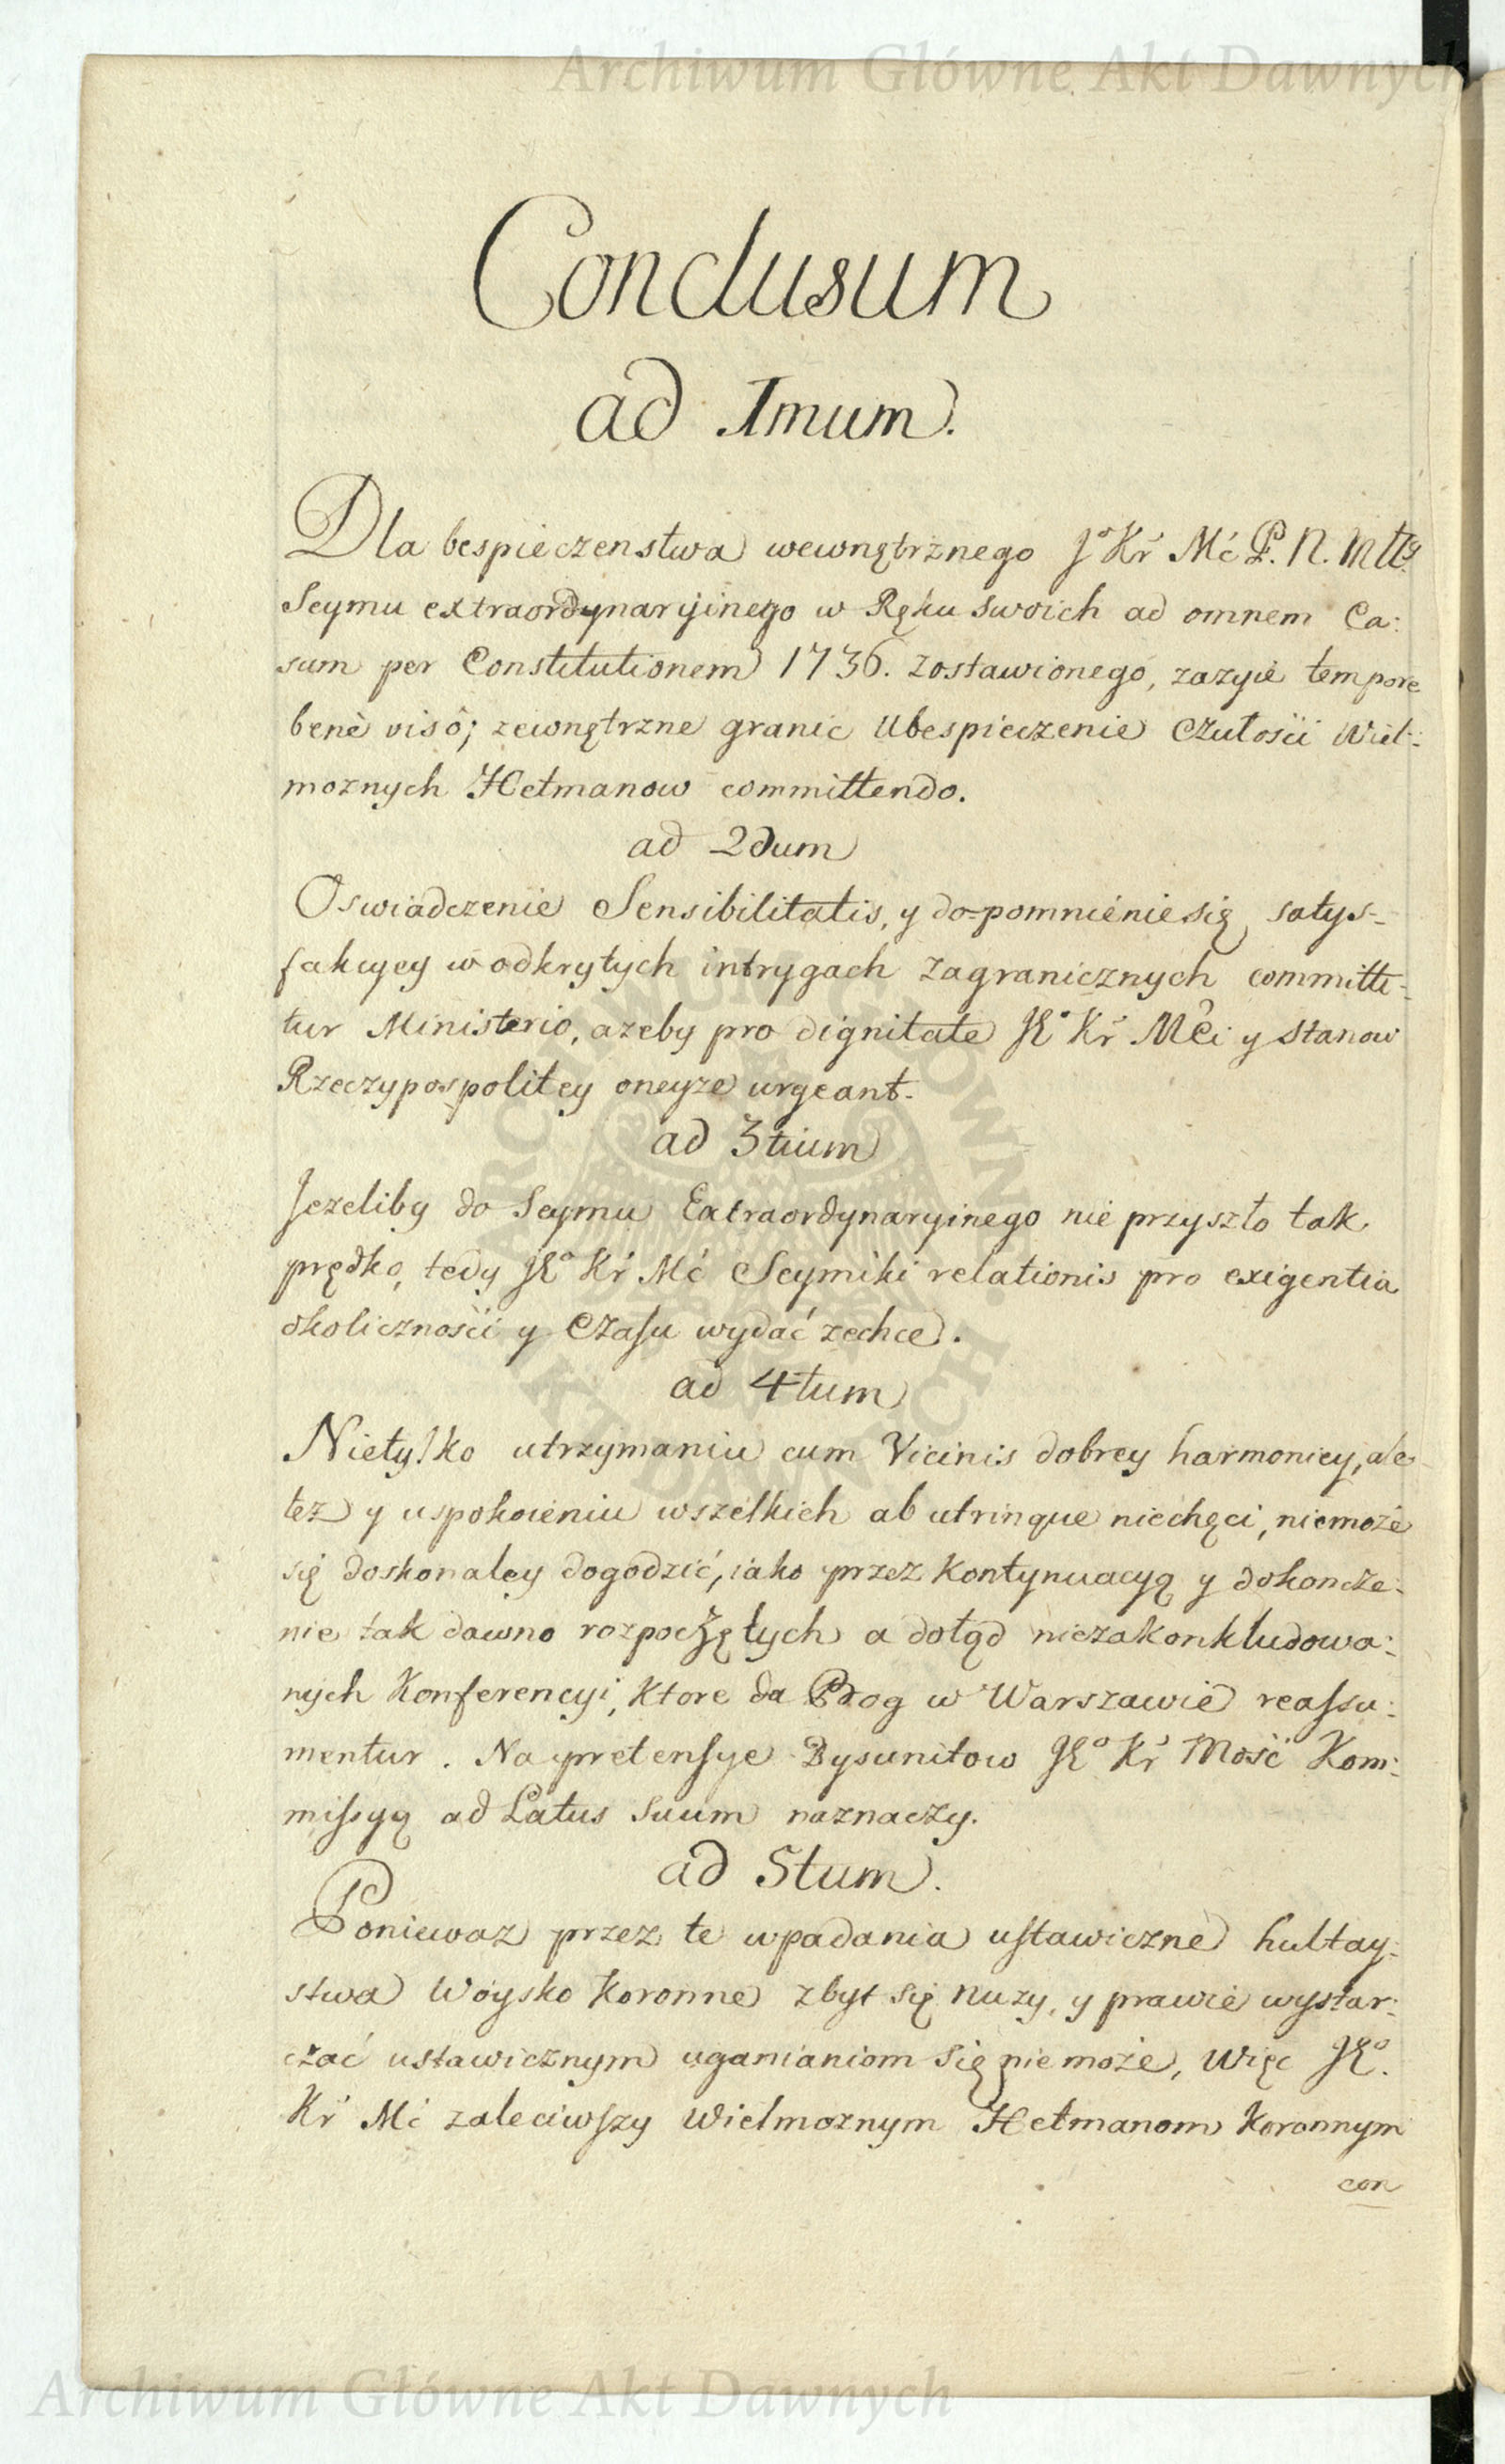 Archiwum Główne Akt Dawnych
Conclusum
ad Imum.
Dla bespieczenstwa wewnętrznego Jº Kr̃ Mć P. N. Mttý
Seymu extraordynaryinego w Ręku Swoich ad omnem Ca:
sum per Constitutionem 1736. zostawionego, zazyie tempore
benè visô; zewnętrzne granic Ubespieczenie Czułosci Wiel:
moznych Hetmanow committendo.
ad 2dum
Oswiadczenie Sensibilitatis, y do-pomnienie się satys-
fakcyey w odkrytych intrygach zagranicznych committe-
tur Ministerio, azeby pro dignitate JKº Kr̃ Mći y Stanow
Rzeczypospolitey oneyze urgeant.
ad 3tium
Jezeliby do Seymu Extraordynaryinego nie przyszło tak
prędko, tedy JKº Kr̃ Mć Seymiki relationis pro exigentia
okolicznosci y Czasu wydać zechce.
ad 4tum
Nietylko utrzymaniu cum Vicinis dobrey harmoniey, ale
tez y uspokoieniu wszelkich ab utrinque niechęci, niemoze
się doskonaley dogodzić, iako przez kontynuacyą y dokoncze:
nie tak dawno rozpoczętych a dotąd niezakonkludowa:
nych Konferencyi, ktore da Bog w Warszawie reassu:
mentur. Na pretensye Dysunitow JKº Kr̃ Mość Kom:
missyą ad Latus Suum naznaczy.
ad 5tum.
Poniewaz przez te wpadania ustawiczne hultay:
stwa Woysko koronne zbyt się nuzy, y prawie wystar:
czać ustawicznym uganianiom się nie może, Więc JKº.
Kr̃ Mć zaleciwszy Wielmoznym Hetmanom Koronnym
con
Archiwum Główne Akt Dawnych